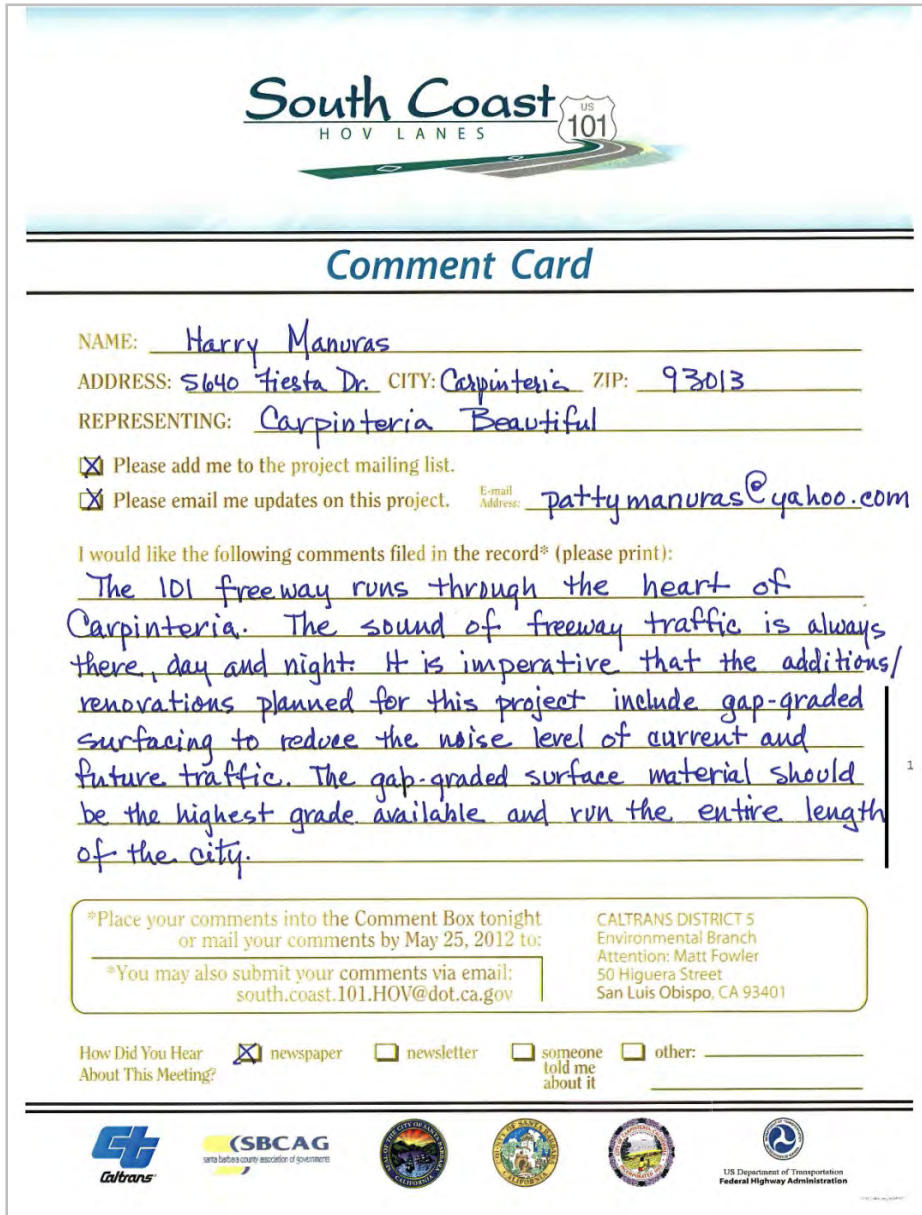 South Coast
HOV LANES
US
101
Comment Card
NAME: Harry Manuras
ADDRESS: 5640 Fiesta Dr. CITY: Carpinteria ZIP: 93013
REPRESENTING: Carpinteria Beautiful
Please add me to the project mailing list.
Please email me updates on this project. E-mail Address: pattymanuras@yahoo.com
I would like the following comments filed in the record* (please print):
The 101 freeway runs through the heart of
Carpinteria. The sound of freeway traffic is always
there, day and night. It is imperative that the additions/
renovations planned for this project include gap-graded
surfacing to reduce the noise level of current and
future traffic. The gap-graded surface material should
be the highest grade available and run the entire length
of the city.
1
*Place your comments into the Comment Box tonight
or mail your comments by May 25, 2012 to:
*You may also submit your comments via email:
south.coast.101.HOV@dot.ca.gov
CALTRANS DISTRICT 5
Environmental Branch
Attention: Matt Fowler
50 Higuera Street
San Luis Obispo, CA 93401
How Did You Hear
About This Meeting?
newspaper
newsletter
someone
told me
about it
other:
Caltrans
SBCAG
santa barbara county association of governments
US Department of Transportation
Federal Highway Administration